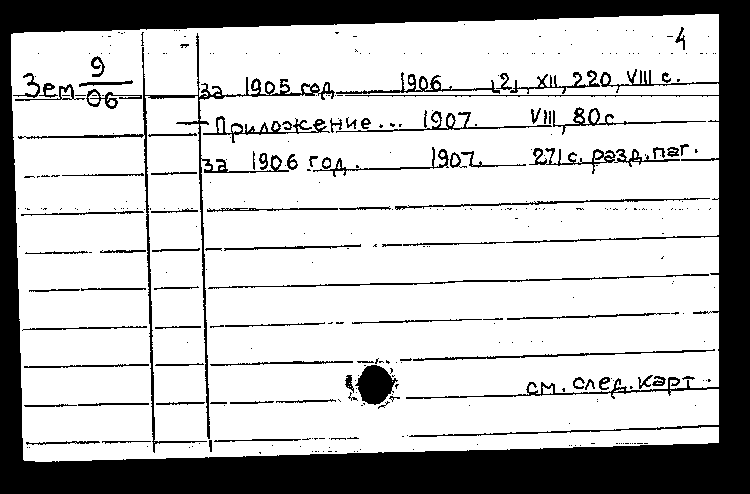 4
Зем 9/06
за 1905 год 1906. [2], XII, 220, VIII с.
— Приложение... 1907. VIII, 80 с.
за 1906 год. 1907. 271 с. разд. паг.
см. след. карт.